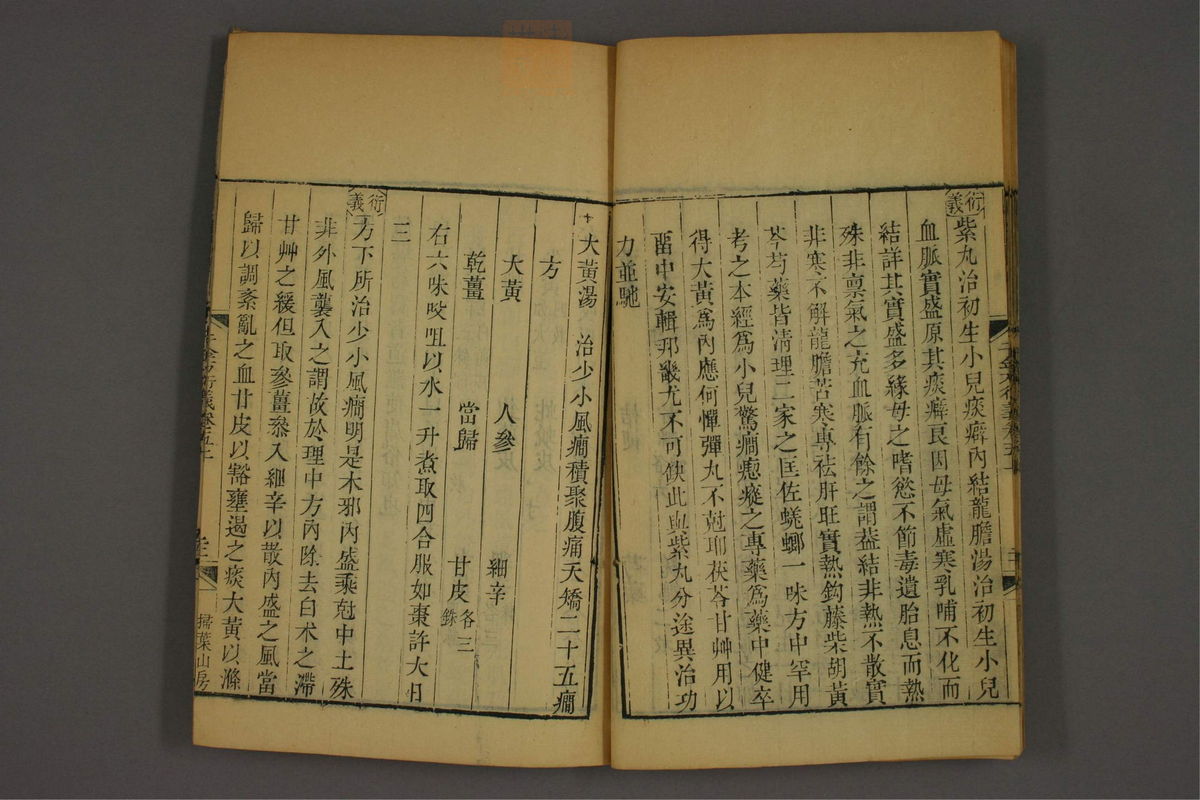 衍義
紫丸治初生小兒痰癖內結龍膽湯治初生小兒
血脈實盛原其痰癖良因母氣虛寒乳哺不化而
結詳其實盛多緣母之嗜慾不節毒遺胎息而熱
殊非禀氣之充血脈有餘之謂葢結非熱不散實
非寒不解龍膽苦寒專祛肝旺實熱鈎藤柴胡黃
芩芍藥皆清理二家之匡佐蜣螂一味方中罕用
考之本經爲小兒驚癎瘛瘲之專藥爲藥中健卒
得大黃爲內應何憚彈丸不尅耶茯苓甘艸用以
畱中安輯邦畿尤不可缺此與紫丸分途異治功
力並馳
大黃湯 治少小風癎積聚腹痛夭矯二十五癎
方
大黃 人參 細辛
乾薑 當歸 甘皮各三銖
右六味㕮咀以水一升煮取四合服如棗許大日
三
衍義
方下所治少小風癎明是木邪內盛乘尅中土殊
非外風襲入之謂故於理中方內除去白术之滯
甘艸之緩但取參薑叅入細辛以散內盛之風當
歸以調紊亂之血甘皮以豁壅遏之痰大黃以滌
千金方衍義卷五上
掃葉山房